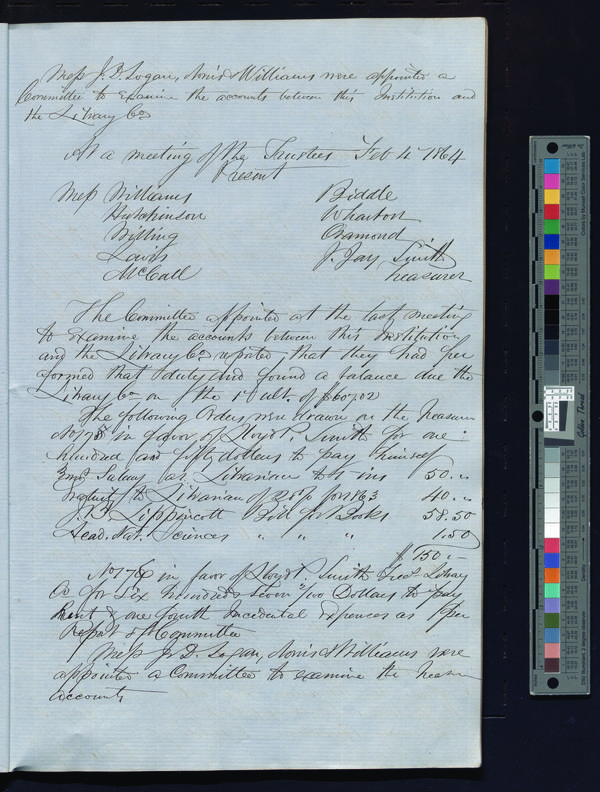 Mess J. D. Logan, Norris & Williams were appointed a
Committee to examine the accounts between this Institution and
the Library Co
At a meeting of the Trustees Feb 4 1864
Present
Mess Williams Biddle
Hutchinson Wharton
Willing Ormond
Lewis J. Jay Smith
McCall Treasurer
The Committee appointed at the last meeting
to examine the accounts between this Institution
and the Library Co reported, that they had per
formed that duty and found a balance due the
Library Co on the 1 ult. of $607.02
The following Orders were drawn on the Treasurer
in favor of Lloyd P. Smith for one
hundred and fifty dollars to pay himself
Salary as Librarian to 1 ins 50.
to Librarian of for 1863 40.
Lippincott Bill for Books 58.50
Acad. Nat. Sciences " " " 1.50
$150.
in favor of Lloyd P. Smith Treas Library
Co for Six hundred & seven Dollars to pay
Rent & one fourth Incidental Expences as per
Report of Committee
Mess J. D. Logan, Norris & Williams were
appointed a Committee to examine the Treasr
accounts